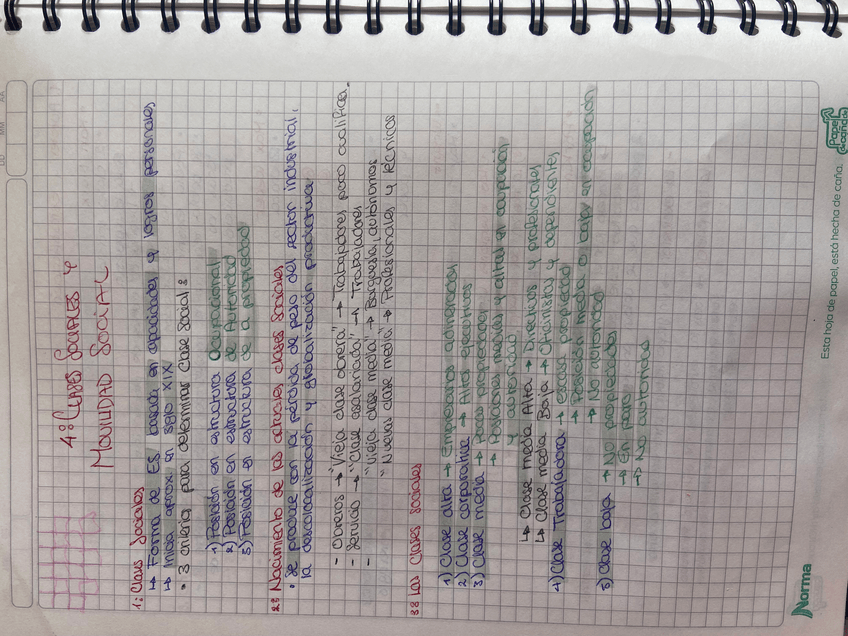 4: CLASES SOCIALES Y
MOVILIDAD SOCIAL
1: Clases Sociales
↳ Forma de ES basada en capacidades y logros personales
↳ Inicia aprox en siglo XIX
• 3 criterios para determinar clase social:
1) Posición en estructura Ocupacional
2) Posición en estructura de Autoridad
3) Posición en estructura de la propiedad
2: Nacimiento de las actuales clases sociales
• Se produce con la pérdida de peso del sector industrial,
la descolocalización y globalización productiva
- Obreros → "Vieja clase obrera" → Trabajadores poco cualifica.
- Servicio → "Clase asalariada" → Trabajadores
- "Vieja clase media" → Burguesía, autónomos
"Nueva clase media" → Profesionales y técnicos
3: Las clases sociales
1) Clase alta → Empresarios adinerados
2) Clase corporativa → Altos ejecutivos
3) Clase media → pocas propiedades
→ Posiciones medias y altas en ocupación
y autoridad
↳ Clase media Alta → Directivos y profesionales
↳ Clase media Baja → Oficinistas y dependientes
4) Clase Trabajadora → escasa propiedad
→ Posición media o baja en ocupación
→ No autoridad
5) Clase baja → No propiedades
→ En paro
→ No autoridad
Norma
Esta hoja de papel, está hecha de caña.
Papel de caña de
DD MM AA